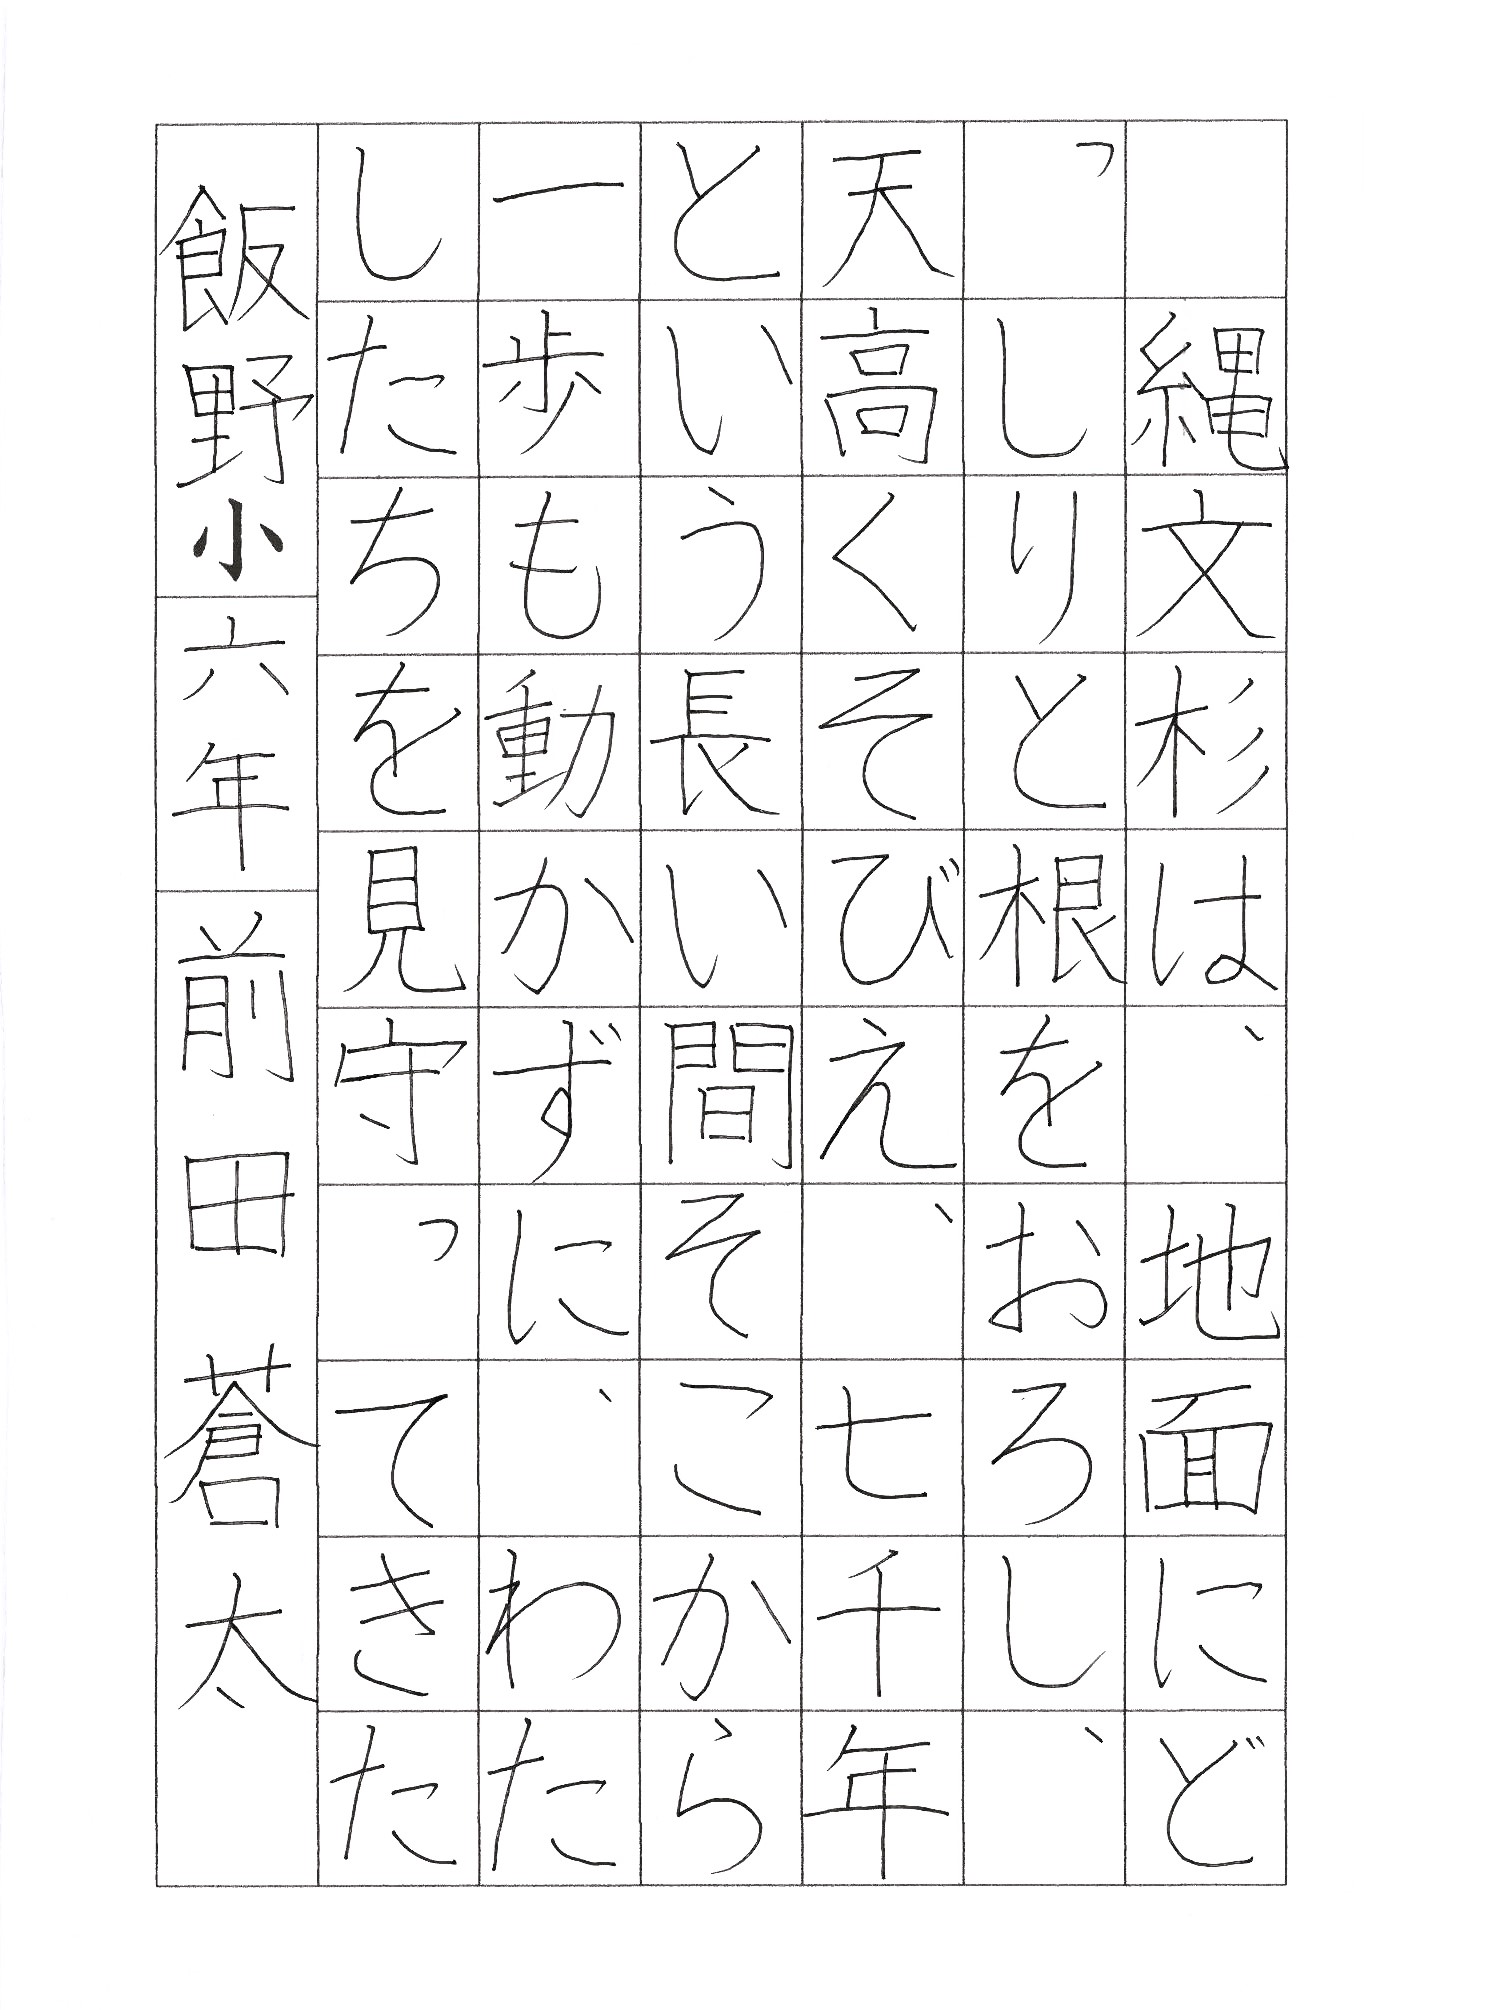 縄文杉は、地面にど
っしりと根をおろし、
天高くそびえ、七千年
という長い間そこから
一歩も動かずに、わた
したちを見守ってきた
飯野小六年前田蒼太